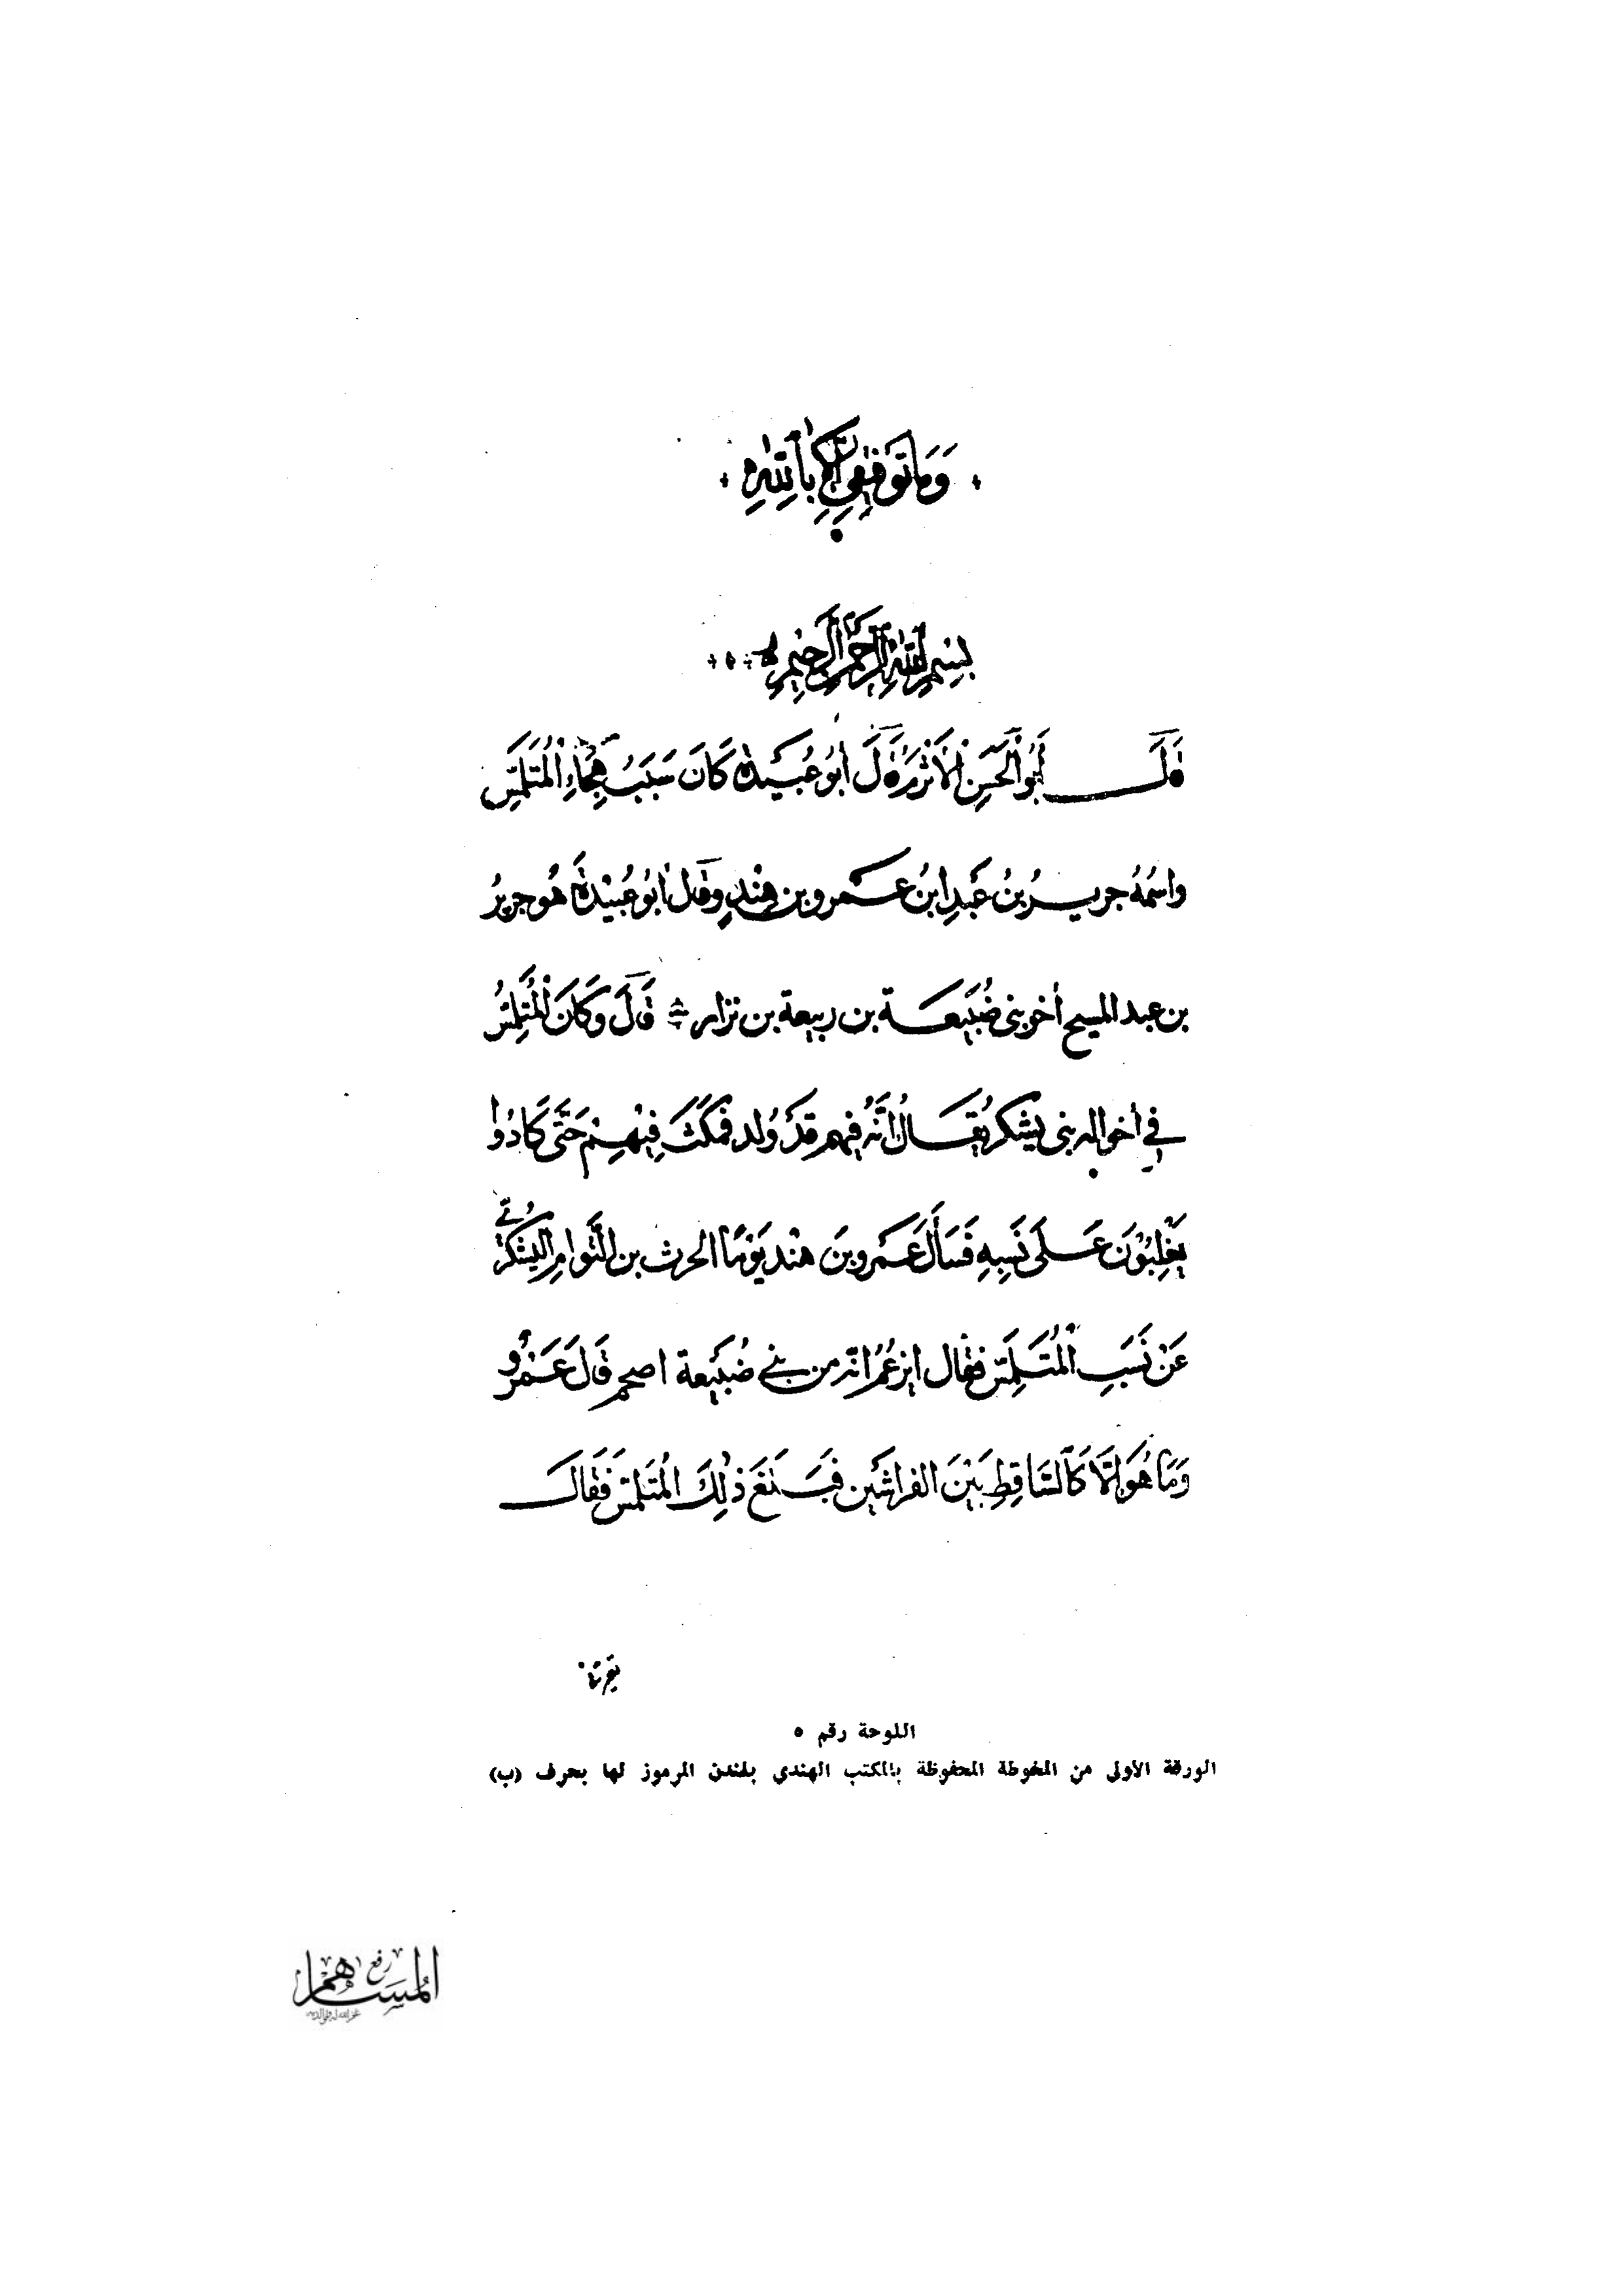 وَمَا تَوفِيقِي إِلَّا بِاللهِ
بِسْمِ اللهِ الرَّحْمٰنِ الرَّحِيمِ
قَالَ أَبُو الْحَسَنِ الأَثْرَمُ قَالَ أبُو عُبَيْدَةَ كَانَ سَبَبُ هِجَاءِ الْمُتَلَمِّسِ
واسْمُهُ جريرُ بْنُ عَبْدِ ابنُ عَمرو بن هِنْدٍ وقَال أبُو عُبَيْدَةَ هُو جريرُ
بن عبد المسيح أخو بنى ضُبَيْعَة بن ربيعة بن نزار قَالَ وَكَانَ المُتَلَمِّسُ
في أخواله بنى يشكر يُقَالُ انَّهُ فيهم قَدْ وُلد فمَكَثَ فِيْهِمْ حَتَّى كَادُوا
يَغْلِبُوْنَ عَلَى نَسَبِهِ فَسَألَ عَمرو بنَ هْند يَوْمًا الحرث بن التَّوامِ اليَشْكُرِيَّ
عَنْ نَسَبِ الْمُتَلَمِّسِ فقال ايزعُمُ انّه من بنى ضُبَيْعة اصحم قَالَ عَمْرُو
وَمَا هُوَ إلَّا كَالسَّاقِطِ بَيْنَ الفراشَيْن فَبَلَغَ ذٰلِكَ المُتَلَمِّسَ فَقَالَ
يعيرنا
اللوحة رقم ٥
الورقة الأولى من المخوطة المحفوظة بالمكتب الهندي بلندن المرموز لها بحرف (ب)
رفع
المساهم
غفر الله له ولوالديه